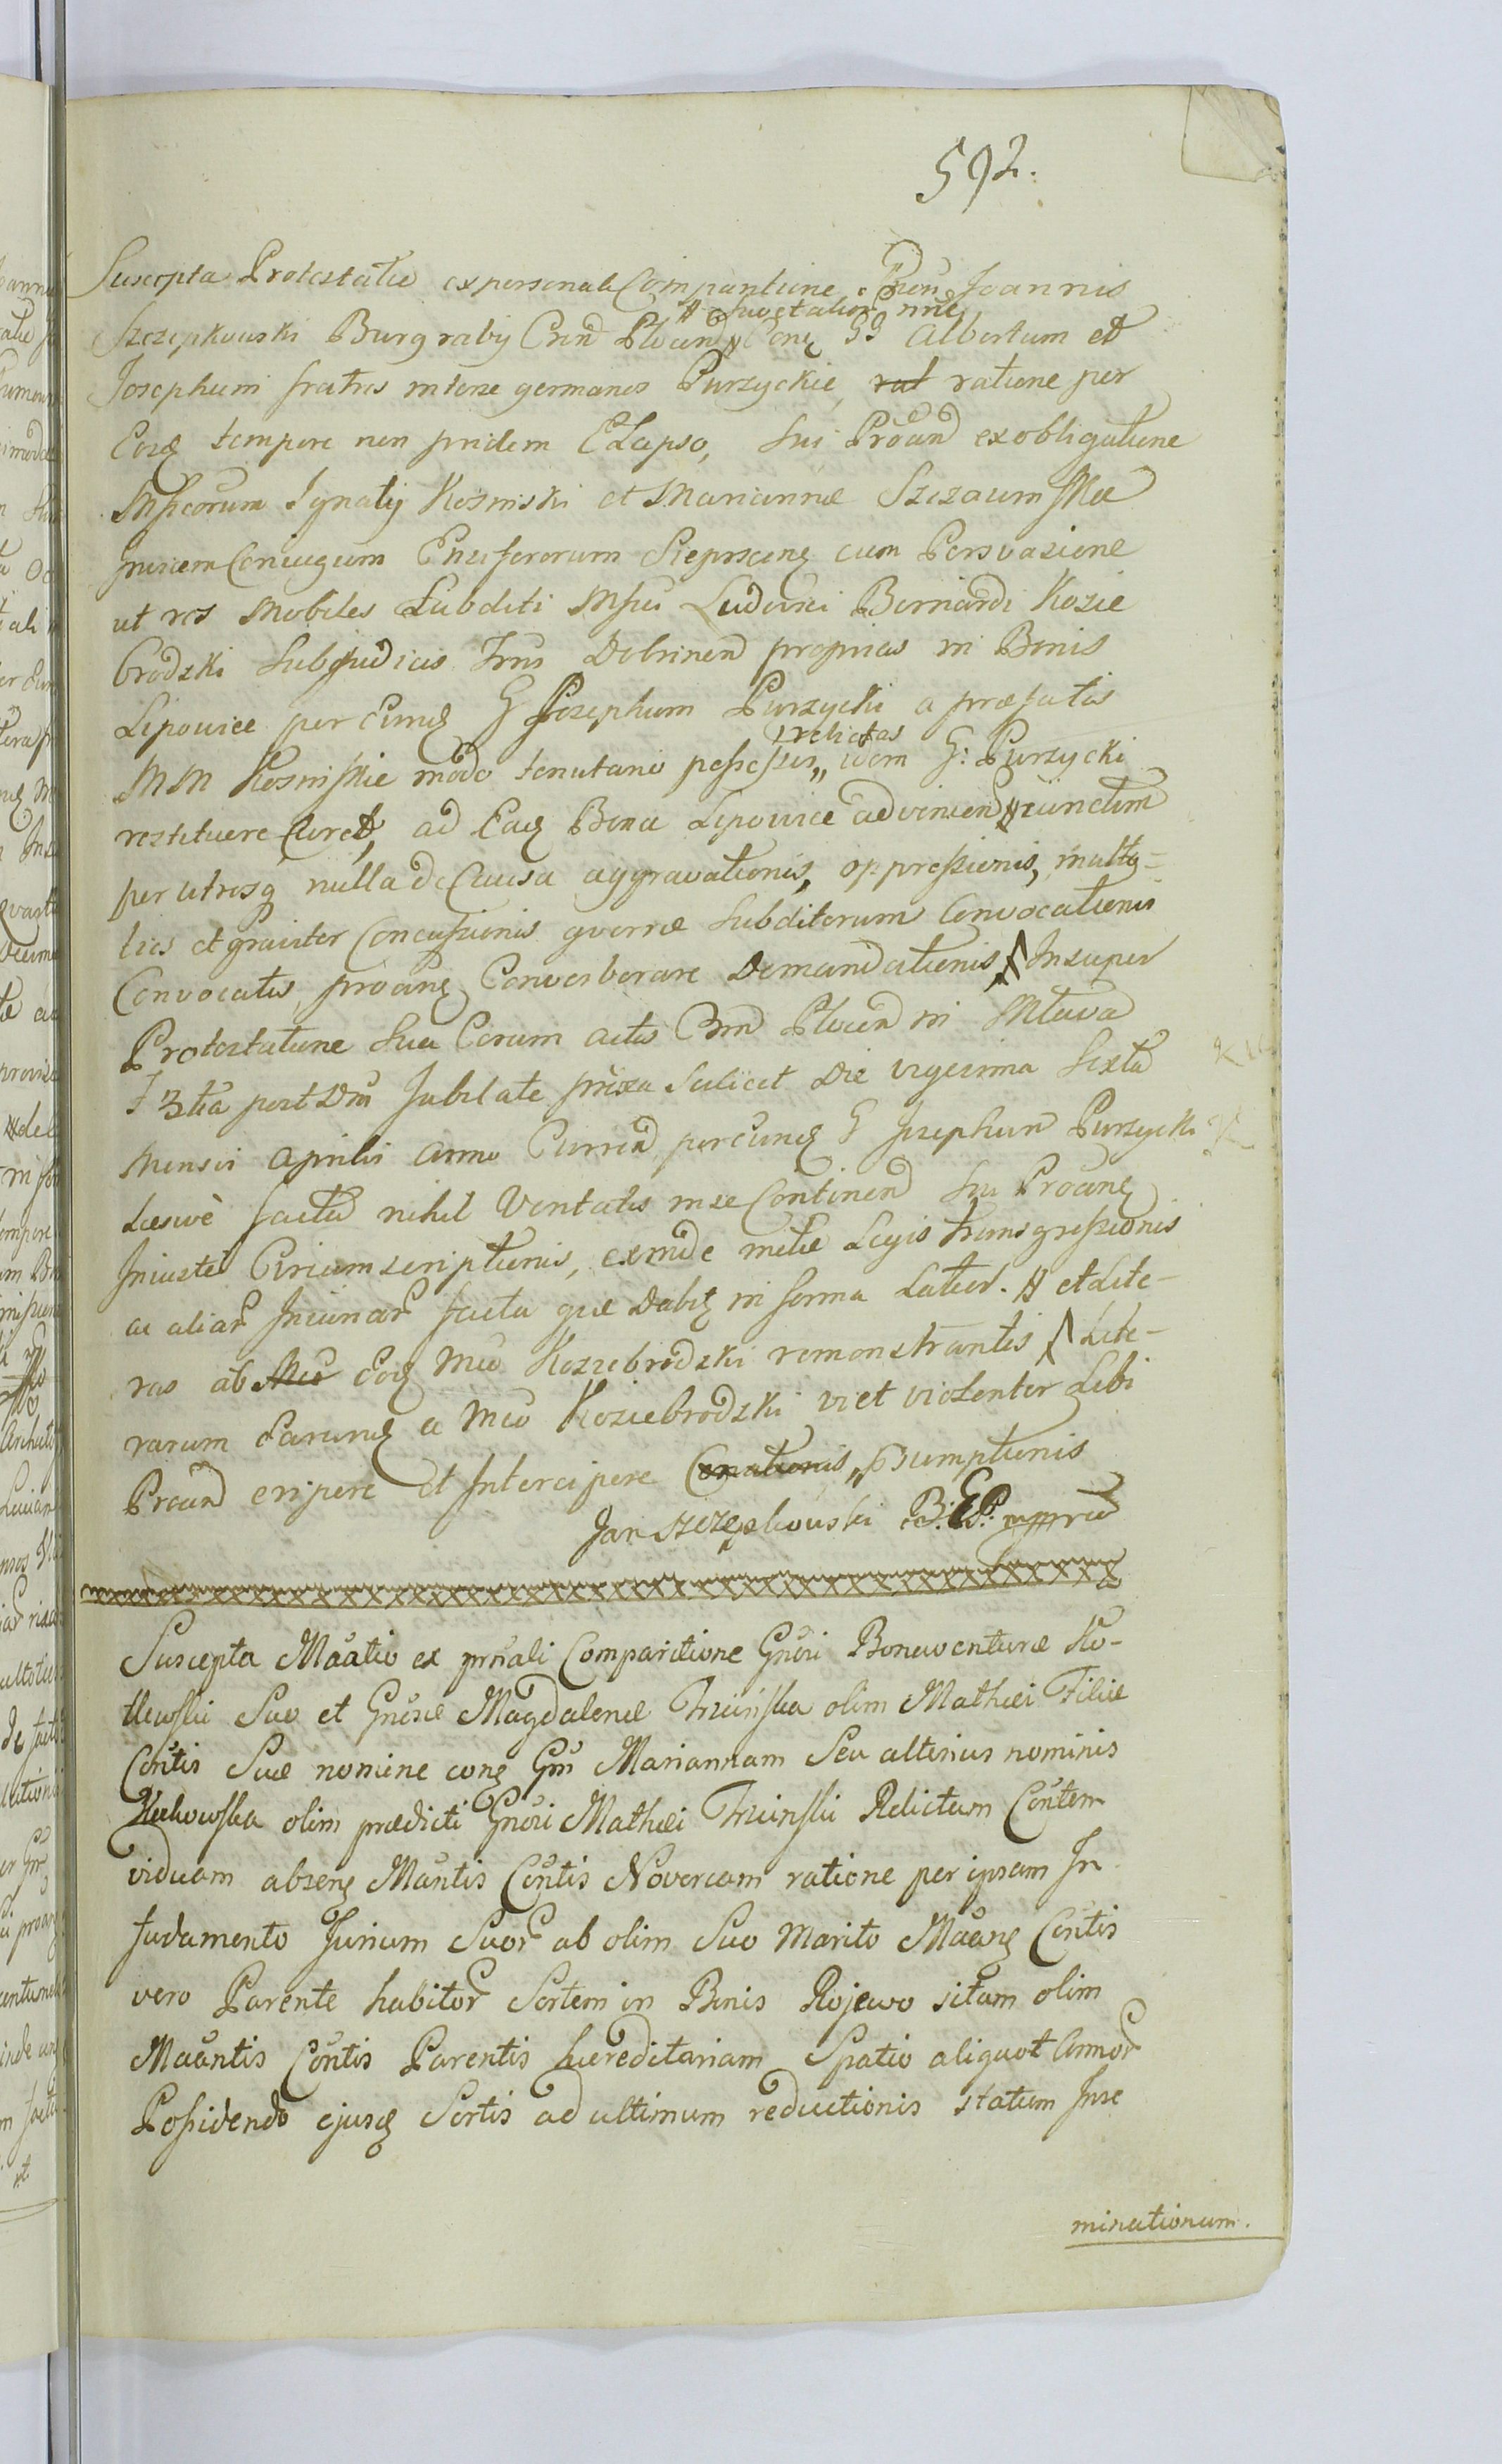 592.
Suscepta Protestatio ex personali Comparitione Gnēri Joannis
# Suo et alior nne
Szczepkowski Burgrabij Cren Plocen # Conq GG Albertum et
Josephum fratres interse germanos Purzyckie, rat ratione per
Eosq tempore non pridem Elapso, sui Proand ex obligatione
Mficorum Ignatij Kosinski et Mariannæ
Invicem Coniugum Ensiferorum Sieprscens cum Persvasione
ut res Mobiles Subditi Mfici Ludovici Bernardi Kozie
brodzki Subjudicis Trus Dobrinen proprias in Bonis
Lipowiec per eumq G Josephum Purzycki a præfatis
relictas
MM Kosinskie modo tenutario possessis,, idem G: Purzycki
restituere curet, ad Eaq Bona Lipowiec advenien # iunctim
per utrosq nulla de Causa aggravationis, oppressionis, multo=
ties et graviter Concussionis gverræ Subditorum Convocationis
Convocatis proanq Converberare Demandationis, Insuper
Protestatione Sua Coram actis Cren Plocen in Mlawa
F 3tia post Dm Jubilate prixa Scilicet Die vigesima Sexta
Mensis Aprilis Anno Curren per eumq G Josephum Purzycki
Læsivè facta nihil Veritatis inse Continen Sui Proanq
Iniustè Circumscriptionis, exinde metæ Legis transgressionis
ac aliar Iniuriar facta quæ Dabit in forma Latior. # et Lite-
ras ab Mco Eoq Mco Koziebrodzki remonstrantis Lite-
rarum Earumq a Mco Koziebrodzki vi et violenter Sibi
Proand eripere et Intercipere Conationis,, Sumptionis
Jan Szczepkowski B: E P: mppria
Suscepta Māatio ex prnali Comparitione Gnēri Bonaventuræ Ko-
tlewski Suo et Gnēsæ Magdalenæ Trzcinska olim Mathæi Filiæ
Cōntis Suæ nomine conq Gm Mariannam Seu alterius nominis
olim prædicti Gnēri Mathæi Trzcinski Relictam Cōntem
viduam absenq Māntis Cōntis Novercam ratione per ipsam In
fudamento Jurium Suor ab olim Suo Marito Māanq Cōntis
vero Parente habitor Sortem in Bonis Rojewo sitam olim
Māantis Cōntis Parentis hæreditariam Spatio aliquot Annor
Possidendo ejusq Sortis ad ultimum reductionis statum Inse
minationum.